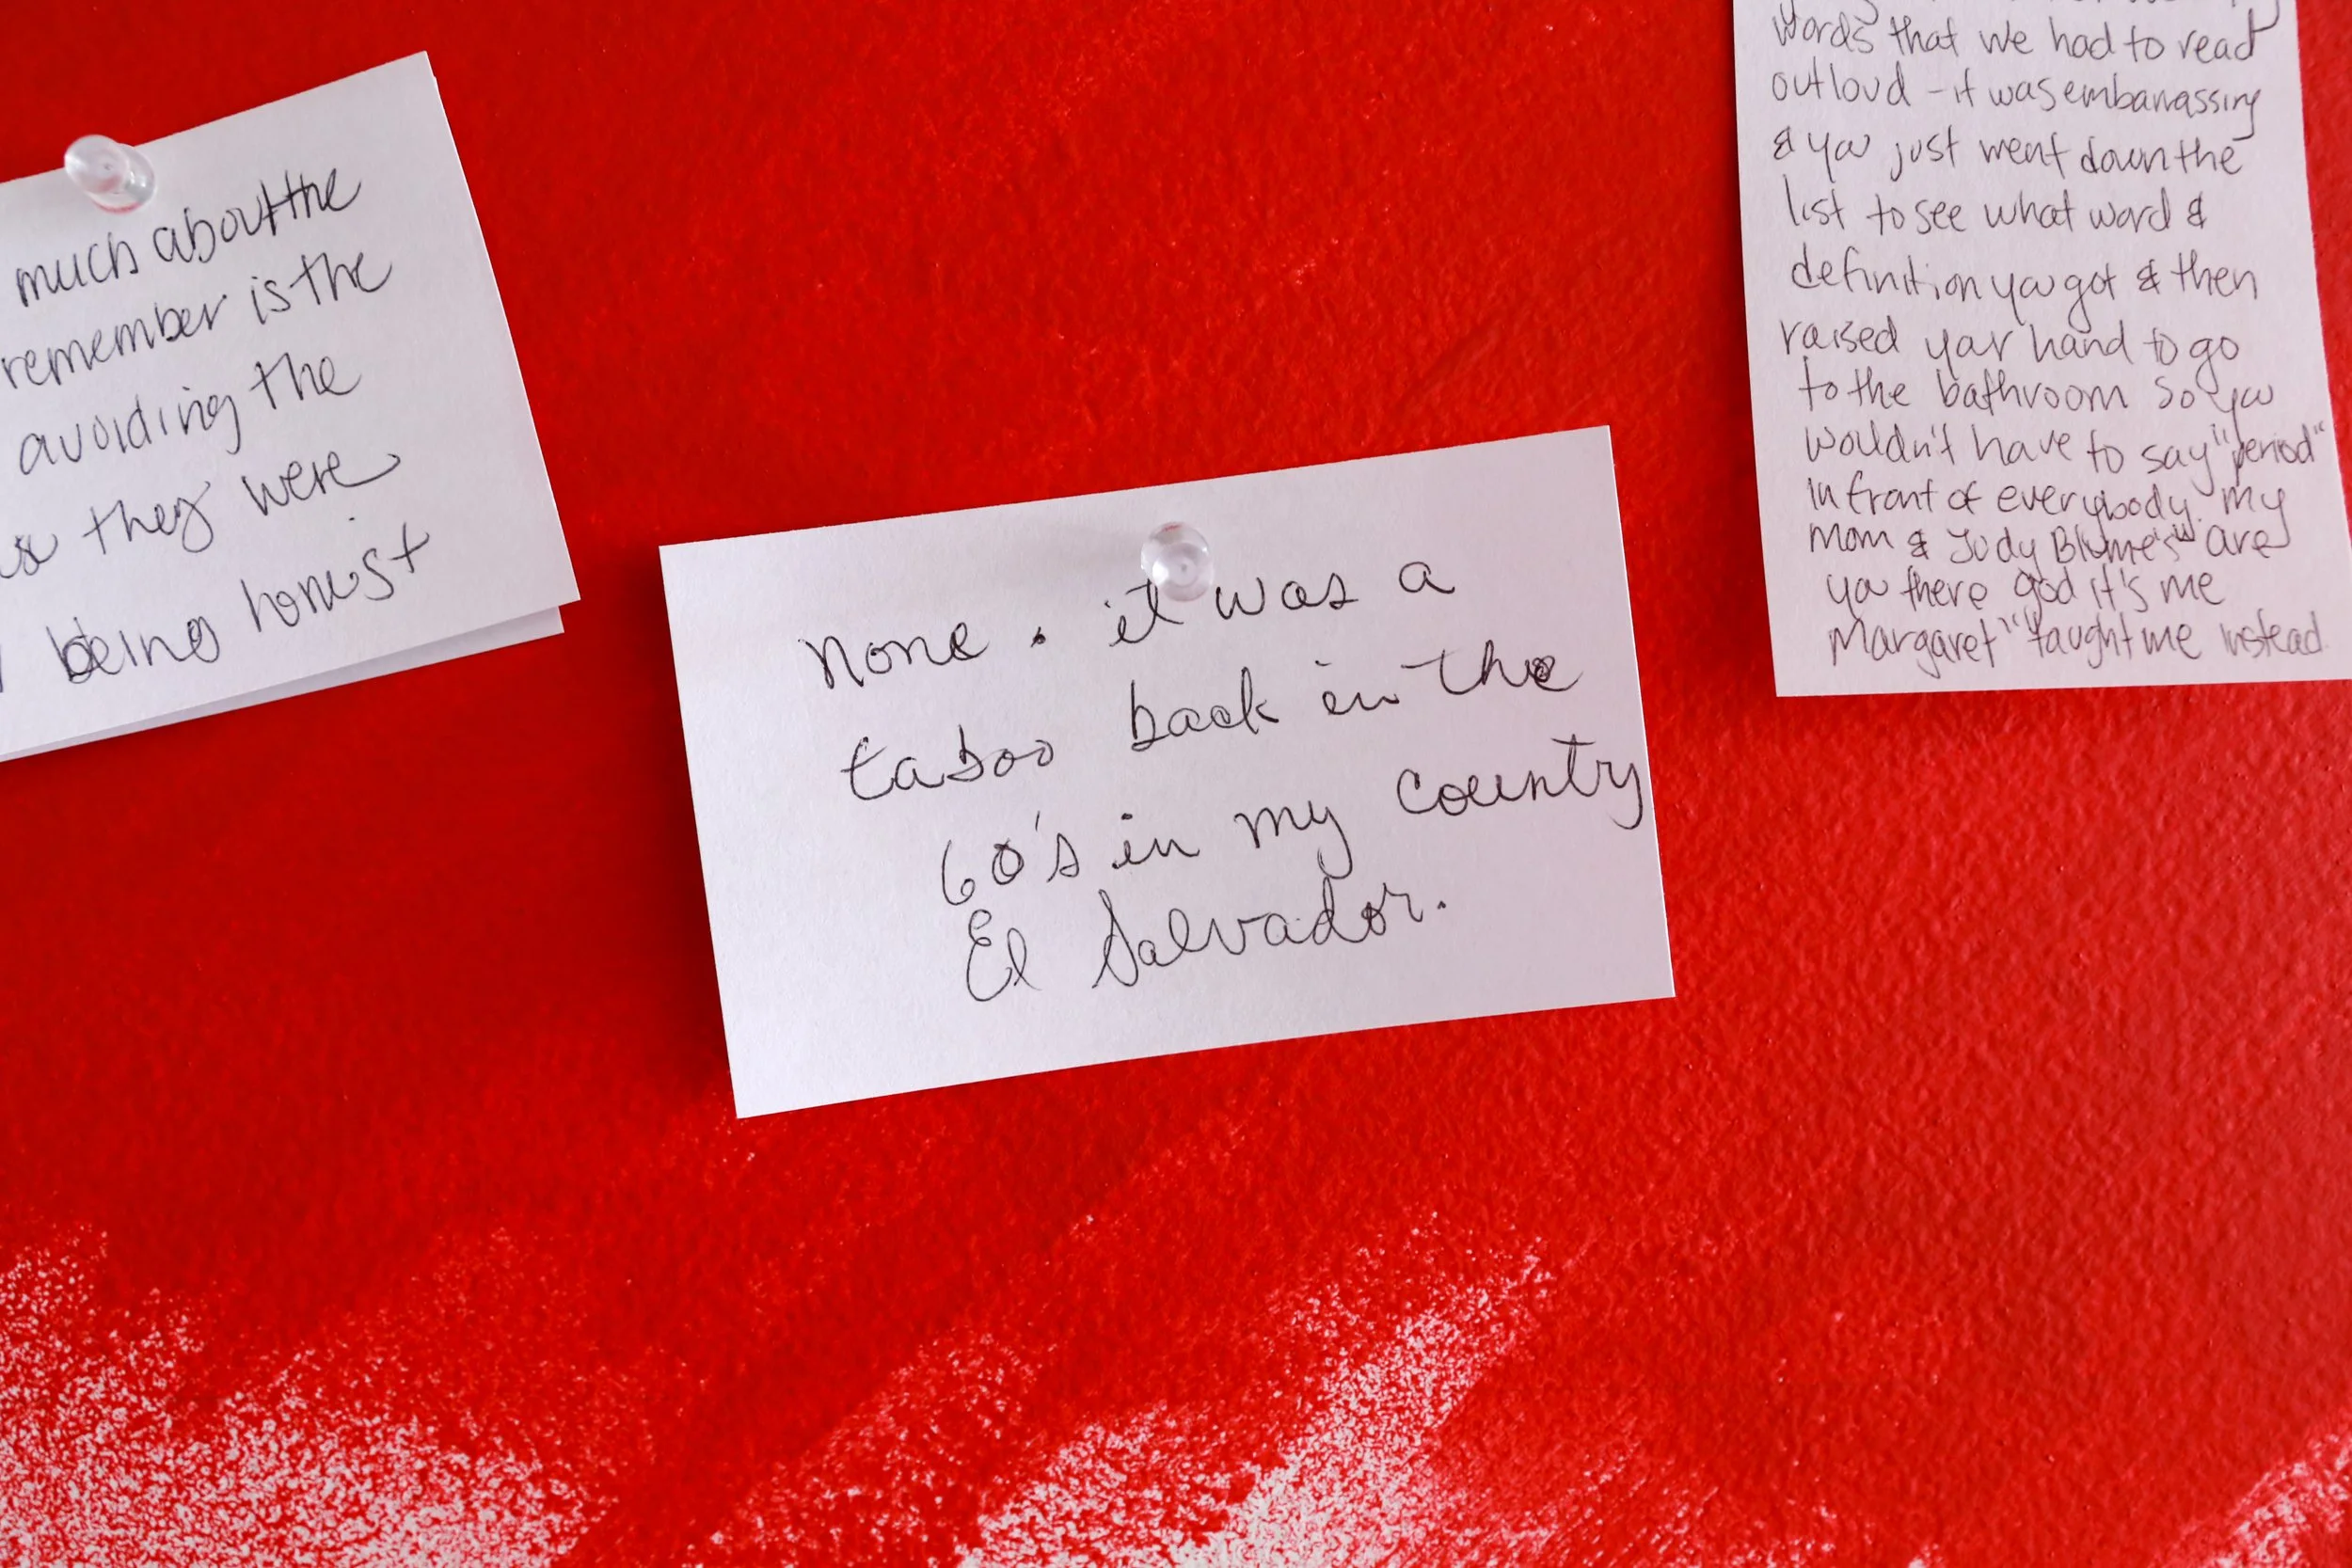 much about the
remember is the
avoiding the
they were
being honest
none. it was a
taboo back in the
60's in my country
El Salvador.
words that we had to read
outloud - it was embarrassing
& you just went down the
list to see what word &
definition you got & then
raised your hand to go
to the bathroom so you
wouldn't have to say "period"
in front of everybody. My
mom & Judy Blume's "are
you there god it's me
Margaret" taught me instead.